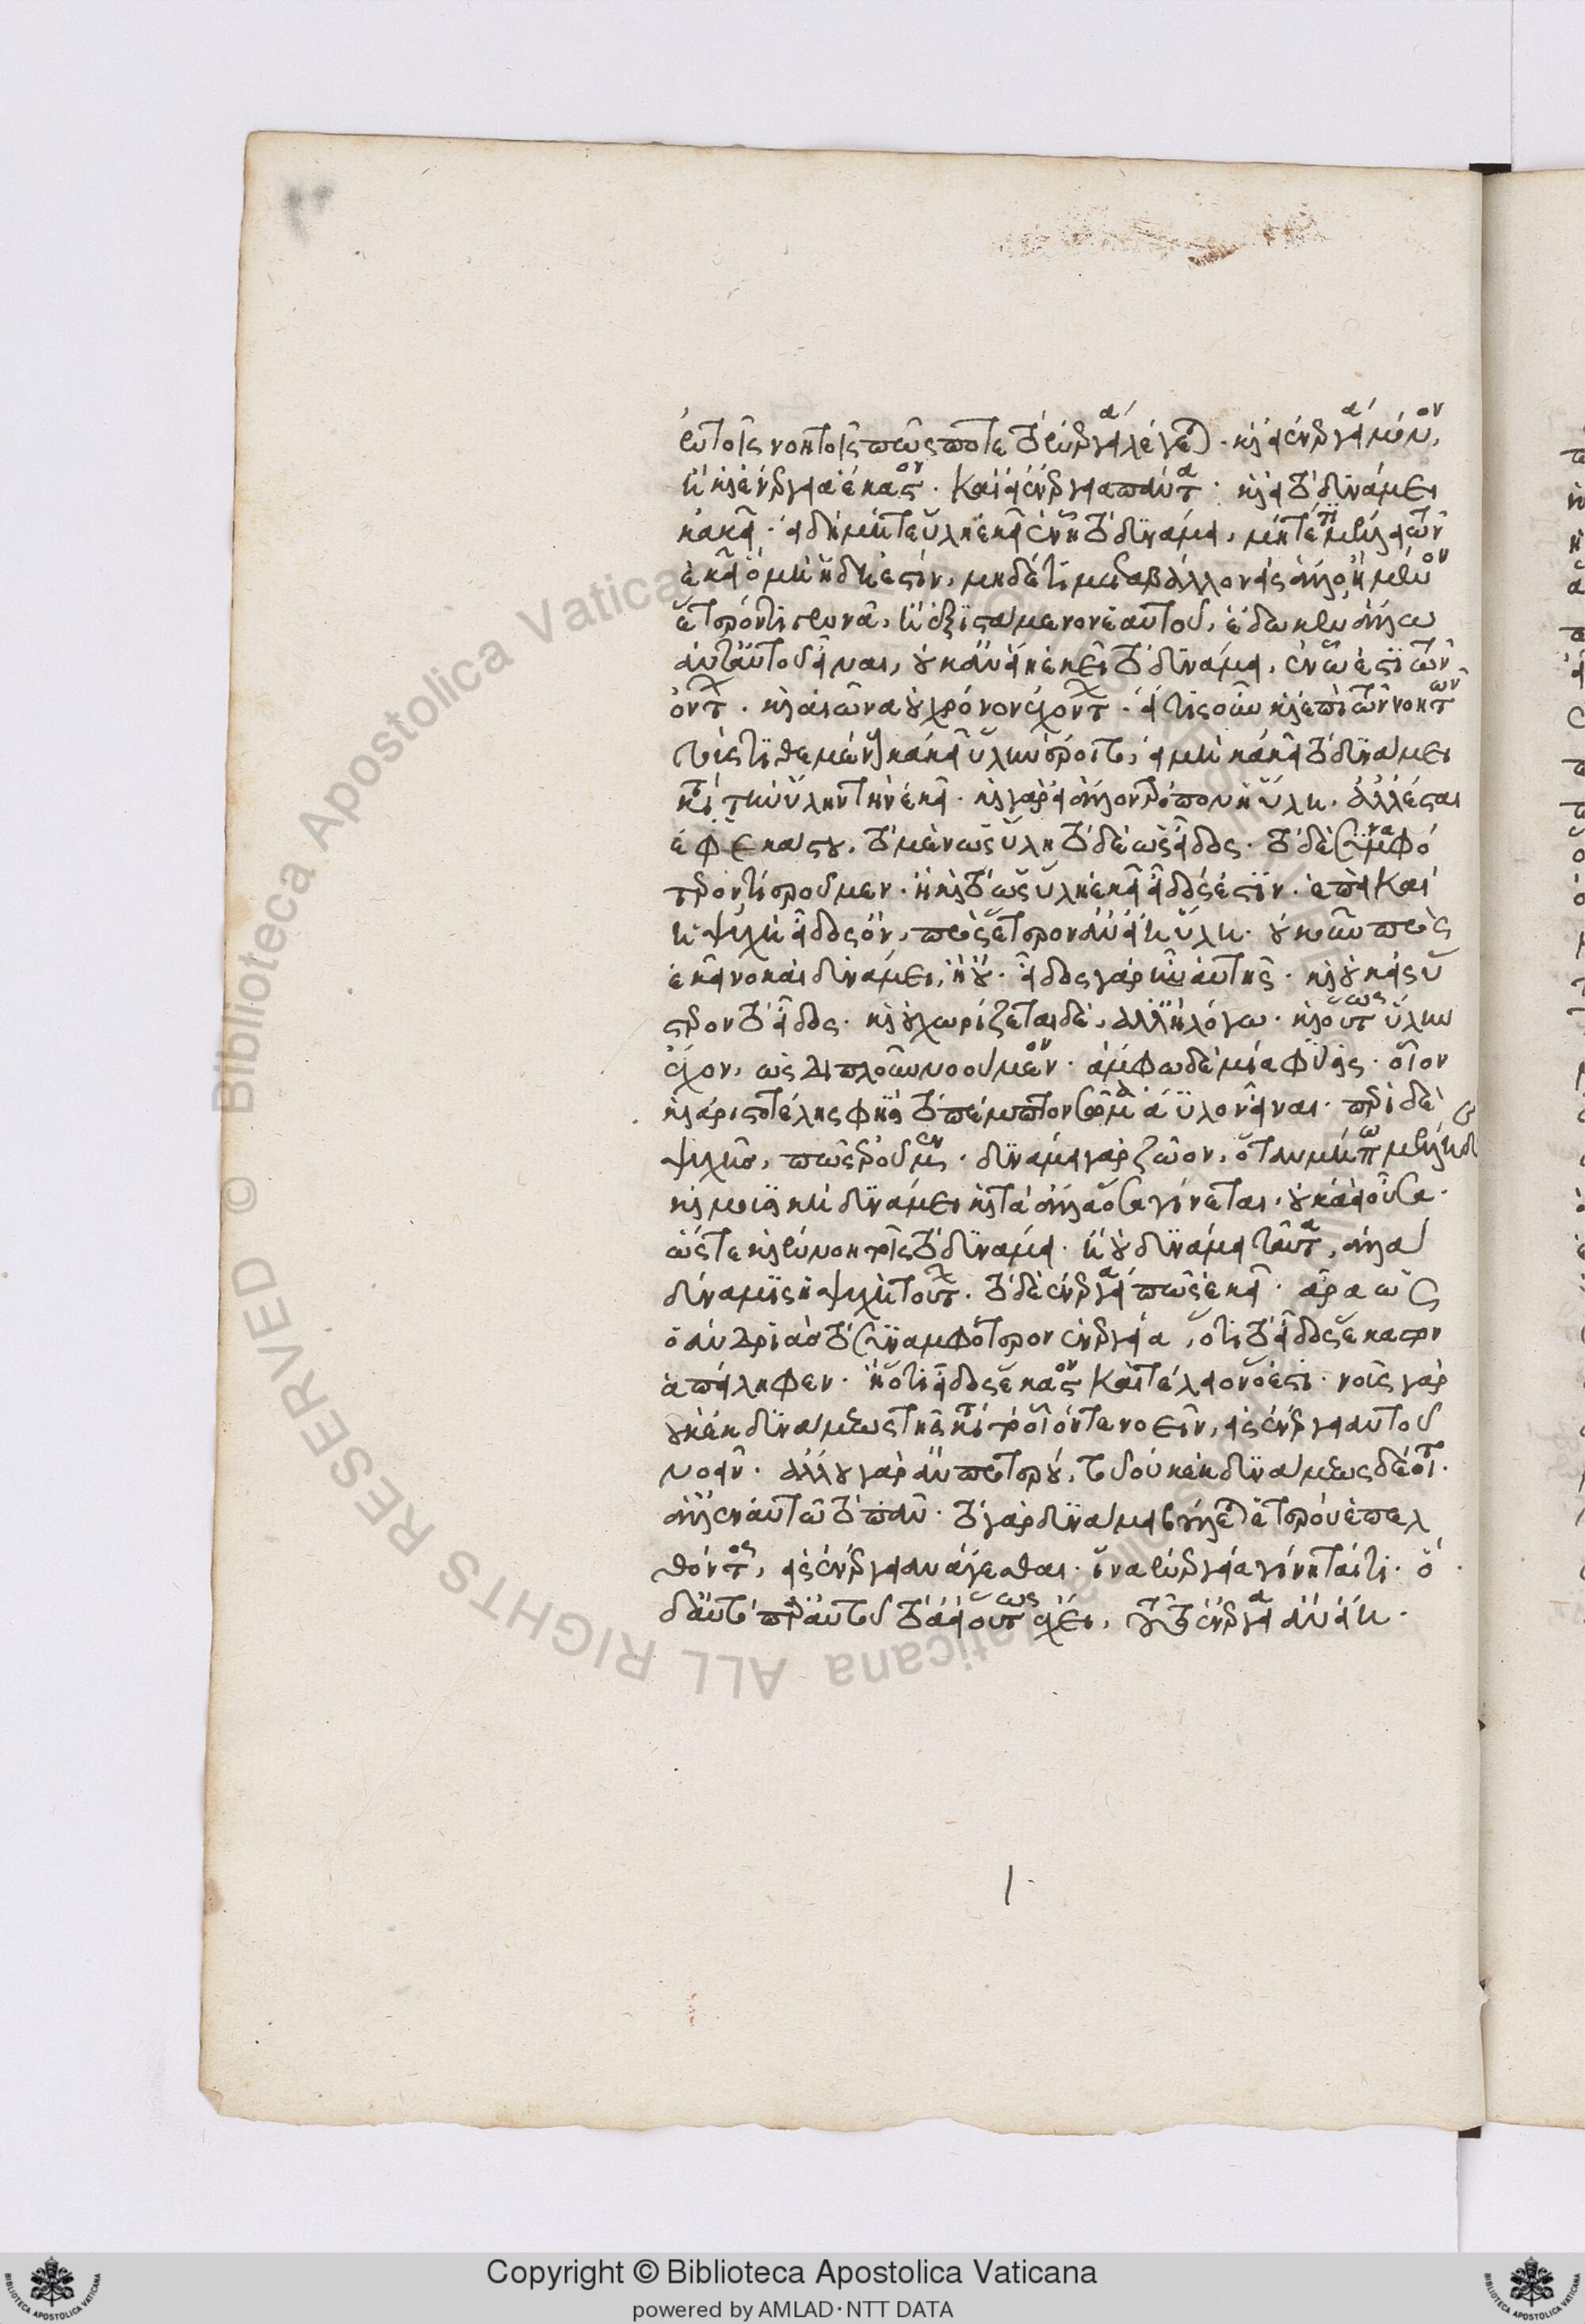 ἐν τοῖς νοητοῖς πῶς ποτε τὸ ἐνεργεία λέγεται. καὶ εἰ ἐνεργεία μόνον,
ἢ καὶ ἐνέργεια ἕκαστον. καὶ εἰ ἐνέργεια πάντα. καὶ εἰ τὸ δυνάμει
κἀκεῖ. εἰ δὴ μήτε ὕλη ἐκεῖ ἐν ᾗ τὸ δυνάμει, μήτέ τι μέλλει τῶν
ἐκεῖ ὃ μὴ ἤδη ἐστίν, μηδέ τι μεταβάλλον εἰς ἄλλο ἢ μένον
ἕτερόν τι γεννᾶ, ἢ ἐξιστάμενον ἑαυτοῦ, ἔδωκεν ἄλλω
ἀνθ' αὑτοῦ εἶναι, οὐκ ἂν εἴη ἐκεῖ τὸ δυνάμει, ἐν ὧ ἐστι τῶν
ὄντων. καὶ αἰῶνα οὐ χρόνον ἐχόντων. εἴ τις οὖν καὶ ἐπὶ τῶν νοητῶν
τοὺς τιθεμένους κἀκεῖ ὕλην ἔροιτο, εἰ μὴ κἀκεῖ τὸ δυνάμει
κατὰ τὴν ὕλην τὴν ἐκεῖ. καὶ γὰρ εἰ ἄλλον τρόπον ἡ ὕλη. ἀλλ' ἔσται
ἐφ' ἑκάστου, τὸ μὲν ὡς ὕλη τὸ δὲ ὡς εἶδος. τὸ δὲ συναμφό
τερον τί ἐροῦμεν. ἢ καὶ τὸ ὡς ὕλη ἐκεῖ εἶδός ἐστιν. ἐπεὶ καὶ
ἡ ψυχὴ εἶδος ὂν, πρὸς ἕτερον ἂν εἴη ὕλη. οὐκοῦν πρὸς
ἐκεῖνο καὶ δυνάμει, ἢ οὔ. εἶδος γὰρ ἦν αὐτῆς. καὶ οὐκ εἰς ὕ
στερον τὸ εἶδος. καὶ οὐ χωρίζεται δὲ, ἀλλ' ἢ λόγω. καὶ οὕτως ὕλην
ἔχον, ὡς διπλοῦν νοούμενον. ἄμφω δὲ μία φύσις. οἷον
καὶ ἀριστοτέλης φησὶ τὸ πέμπτον σῶμα ἄϋλον εἶναι. περὶ δὲ
ψυχῆς, πῶς ἐροῦμεν. δυνάμει γὰρ ζῶον, ὅταν μήπω μέλλη δὲ
καὶ μουσικὴ δυνάμει καὶ τὰ ἄλλα ὅσα γίνεται, οὐκ ἀεὶ οὖσα.
ὥστε καὶ ἐν νοητοῖς τὸ δυνάμει. ἢ οὐ δυνάμει ταῦτα, ἀλλὰ
δύναμις ἡ ψυχὴ τούτων. τὸ δὲ ἐνεργεία πῶς ἐκεῖ. ἆρα ὡς
ὁ ἀνδριὰς τὸ συναμφότερον ἐνεργεία, ὅτι τὸ εἶδος ἕκαστον
ἀπείληφεν. ἢ ὅτι εἶδος ἕκαστον καὶ τέλειον ὅ ἐστι. νοῦς γὰρ
οὐκ ἐκ δυνάμεως τῆς κατὰ τὸ οἷόν τε νοεῖν, εἰς ἐνέργειαν τοῦ
νοεῖν. ἄλλου γὰρ ἂν προτέρου, τοῦ οὐκ ἐκ δυνάμεως δέοιτο.
ἀλλ' ἐν αὐτῶ τὸ πᾶν. τὸ γὰρ δυνάμει βούλεται ἑτέρου ἐπελ
θόντος, εἰς ἐνέργειαν ἄγεσθαι. ἵνα ἐνεργεία γίνηταί τι. ὃ
δ' αὐτὸ παρ' αὑτοῦ τὸ ἀεὶ οὕτως ἔχει, τοῦτο ἐνέργεια ἂν εἴη.
Biblioteca Apostolica Vaticana
ALL RIGHTS RESERVED ©
Copyright © Biblioteca Apostolica Vaticana
powered by AMLAD·NTT DATA